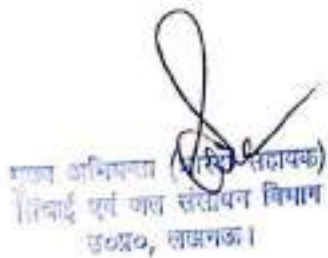 मुख्य अभियन्ता (वरिष्ठ सहायक)
सिंचाई एवं जल संसाधन विभाग
उ०प्र०, लखनऊ।